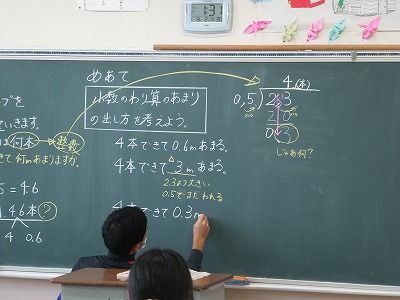 プを
いきます。
は何本 → 整数
きて何mあまりますか。
5 = 46
46本?
4 0.6
めあて
小数のわり算のあまり
の出し方を考えよう。
4本できて0.6mあまる。
4本できて3mあまる。
2.3より大きい
0.5でまたわれる
4本できて0.3m
4(本)
0,5,)2,3
20
0 3
じゃあ何?